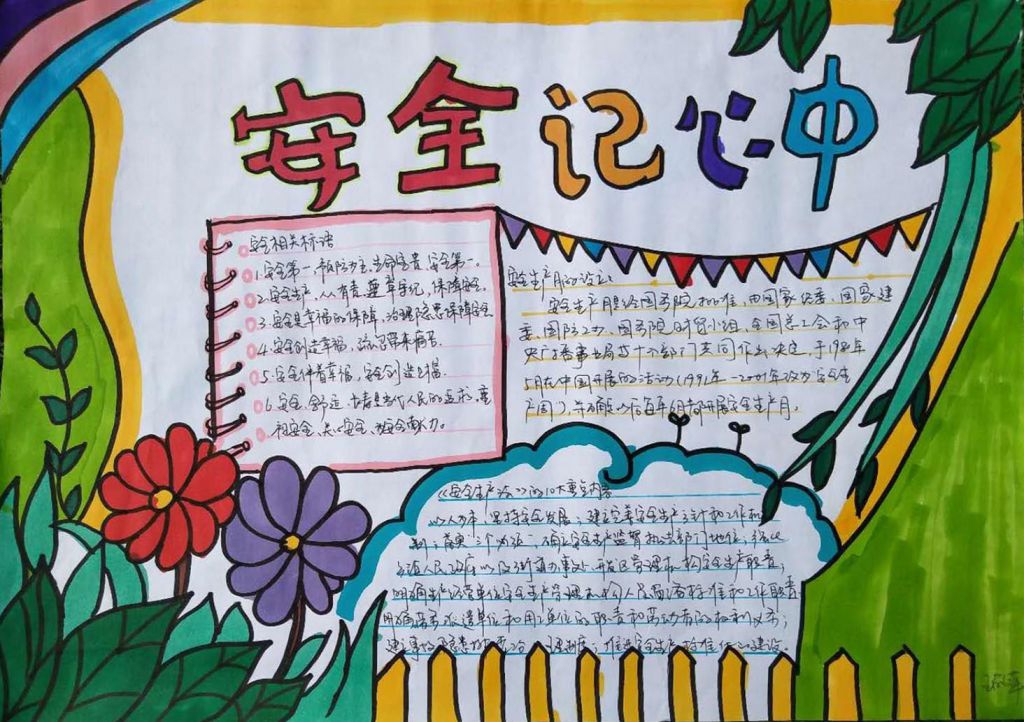 安全记心中
安全相关标语
1.安全第一,预防为主,生命宝贵,安全第一。
2.安全生产,人人有责,遵章守纪,保障安全。
3.安全是幸福的保障,治理隐患保障安全
4.安全创造幸福,疏忽带来痛苦.
5.安全伴着幸福,安全创造幸福.
6.安全、舒适、长寿是当代人民的追求,重
视安全、关心安全、为安全献力。
安全生产月的设立:
安全生产月是经国务院批准,由国家经委、国家建
委、国防工办、国务院财贸小组、全国总工会和中
央广播事业局等十个部门共同作出决定,于1980年
5月在中国开展的活动(1991年-2001年改为安全生
产周),并确定以后每年6月都开展安全生产月。
《安全生产法》的10大重点内容
以人为本,坚持安全发展;建立完善安全生产方针和工作机
制;落实“三个必须”,确立安全生产监管执法部门地位;强化
乡镇人民政府以及街道办事处、开发区管理机构安全生产职责;
明确生产经营单位安全生产管理机构、人员
用工单位的职责和劳动者的权利义务;
建立事故隐患 制度;推进安全生产标准化建设。